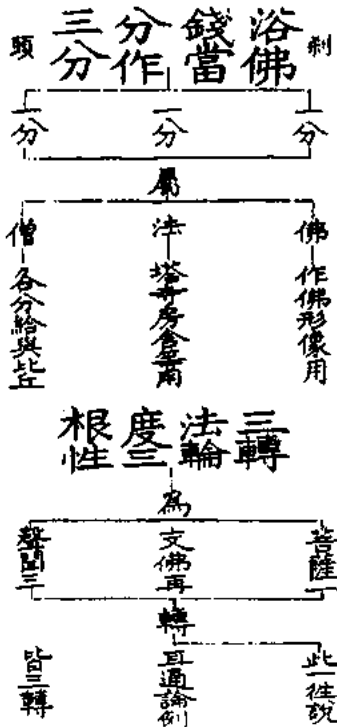 剎
浴佛錢當分作三分
頭
一分
一分
一分
屬
佛
作佛形像用
法
塔寺房舍
僧
各分給與比丘
三轉法輪度三根性
為
菩薩一
支佛再
聲聞三
轉
此一徃說
通論例
皆三轉